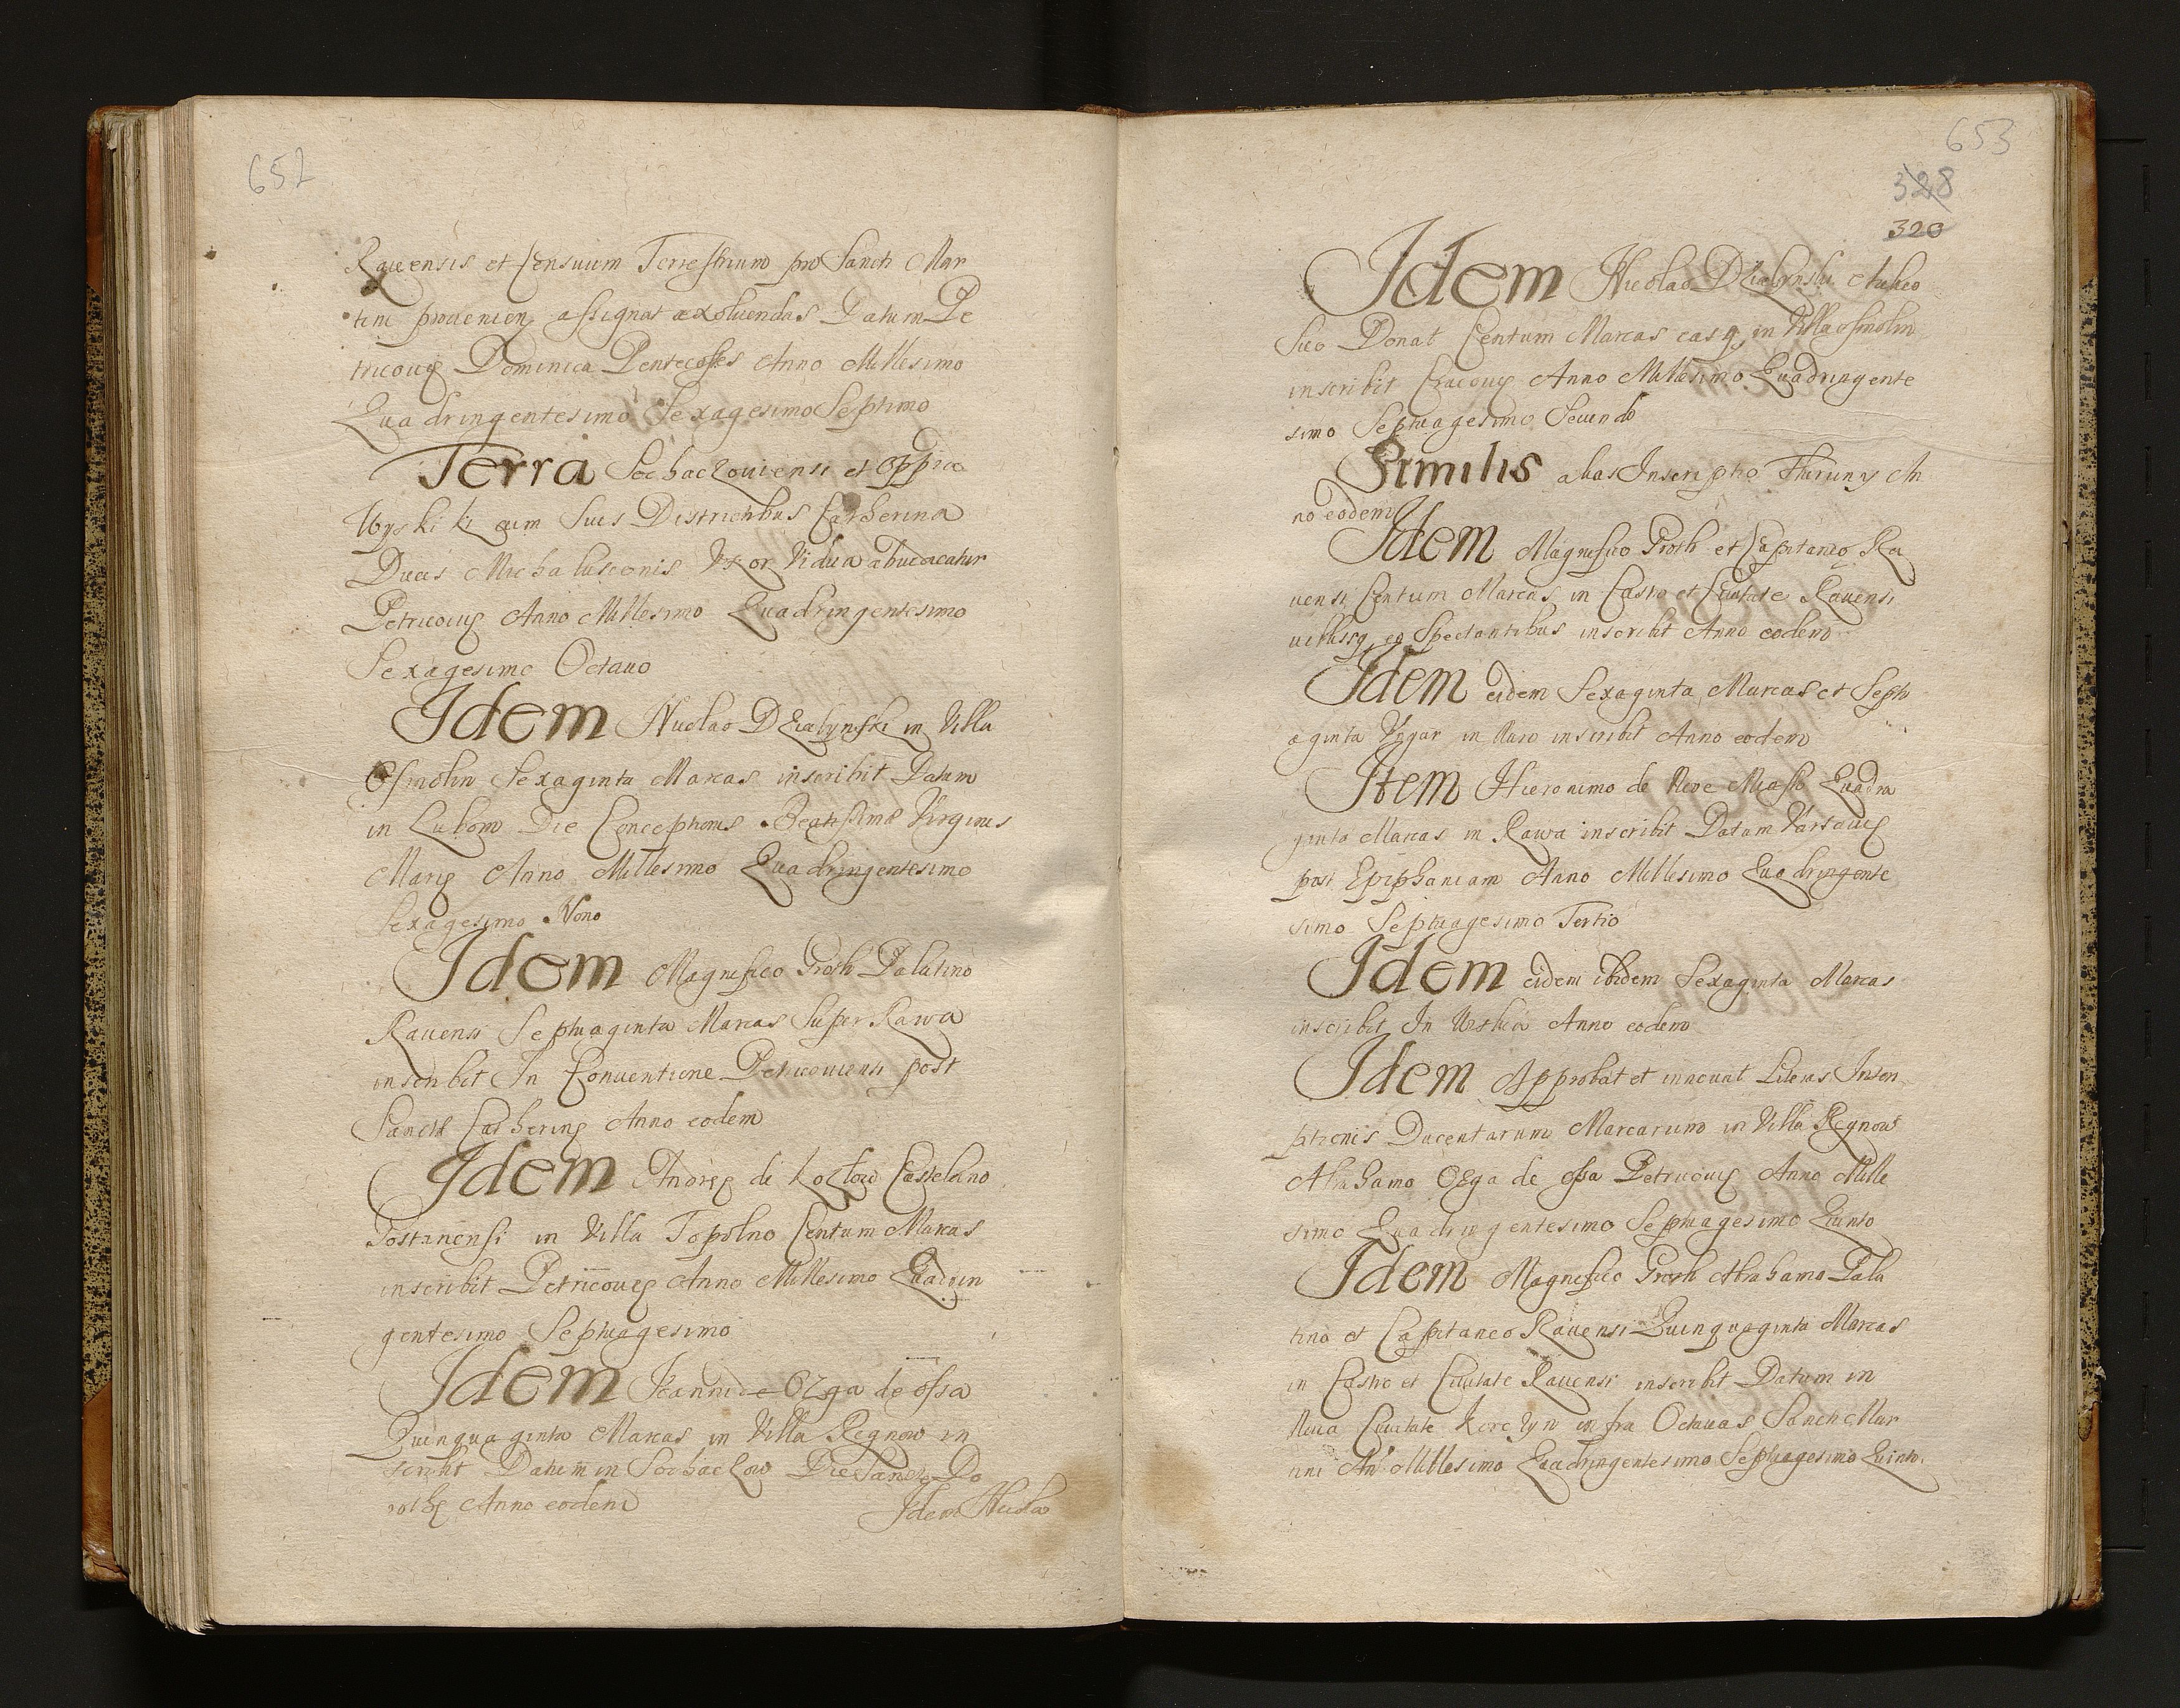 652
Rauensis et Censuum Terrestrium pro Sancti Mar
tini prouenien assignat exoluendas Datum Pe
tricouię Dominica Pentecostes Anno Millesimo
Quadringentesimo Sexagesimo Septimo
Terra Sochaczouiensi et Oppida
Wyskiki cum Suis Districtibus Catherina
Ducis Michalusconis Vxor Vidua
Petricouię Anno Millesimo Quadringentesimo
Sexagesimo Octauo
Idem Nicolao Dzialynski in Villa
Osmolin Sexaginta Marcas inscribit Datum
in Lubom Die Conceptionis Beatissimę Virginis
Marię Anno Millesimo Quadringentesimo
Sexagesimo Nono
Idem Magnifico Groth Palatino
Rauensi Septuaginta Marcas Super Rawa
inscribit In Conuentione Petricouiensi post
Sanctę Catherinę Anno eodem
Idem Andreę de Kozlow Castelano
Gostinensi in Villa Topolno Centum Marcas
inscribit Petricouię Anno Millesimo Quadrin
gentesimo Septuagesimo
Idem Ioanni de Ozga de Ossa
Quinquaginta Marcas in Villa Regnow in
scribit Datum in Sochaczow Die Sanctę Do
rothę Anno eodem
Idem Nicola
653
328
320
Idem Nicolao Dzialynski Aulico
Suo Donat Centum Marcas easq in Villa Osmolin
inscribit Cracouię Anno Millesimo Quadringente
simo Septuagesimo Secundo
Similis alias Inscriptio Thuruny An
no eodem
Idem Magnifico Groth et Capitaneo Ra
uensi Centum Marcas in Castro et Ciuitate Rauensi
uillisq eo Spectantibus inscribit Anno eodem
Idem eidem Sexaginta Marcas et Septu
aginta Vngar in Auro inscribit Anno eodem
Item Hieronimo de Nowe Miasto Quadra
ginta Marcas in Rawa inscribit Datum Varsouię
post Epiphaniam Anno Millesimo Quadringente
simo Septuagesimo Tertio
Idem eidem ibidem Sexaginta Marcas
inscribit In Vislica Anno eodem
Idem Approbat et innouat Literas Inscri
ptionis Ducentarum Marcarum in Villa Regnow
Abrahamo Ozga de Ossa Petricouię Anno Mille
simo Quadringentesimo Septuagesimo Quinto
Idem Magnifico Groth Abrahamo Pala
tino et Capitaneo Rauensi Quinquaginta Marcas
in Castro et Ciuitate Rauensi inscribit Datum in
Noua Ciuitate Korczyn infra Octauas Sancti Mar
tini An Millesimo Quadringentesimo Septuagesimo Quinto